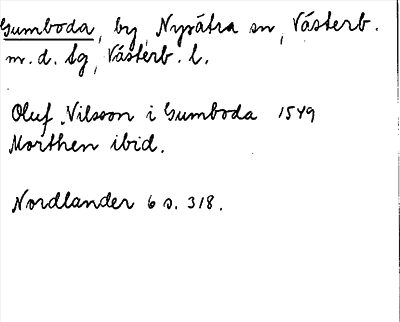 Gumboda, by, Nysätra sn, Västerb.
m. d. tg, Västerb. l.
Oluf Nilsson i Gumboda 1549
Morthen ibid.
Nordlander 6 s. 318.